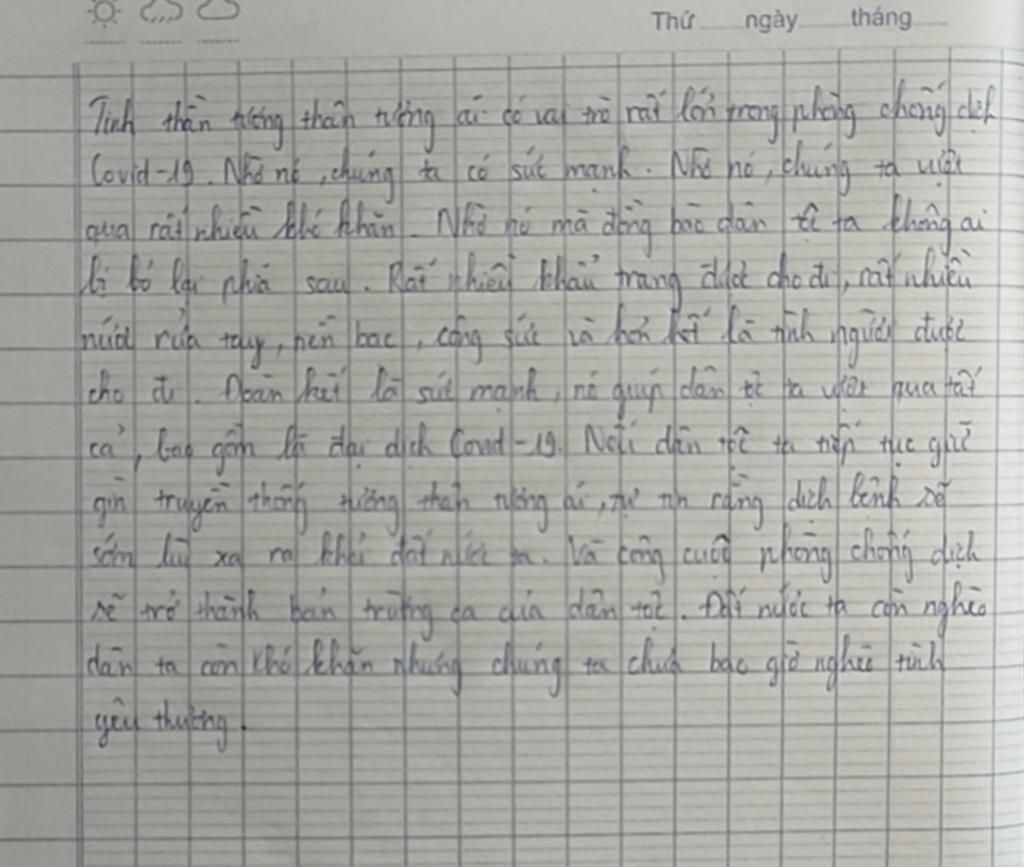 Thứ ngày tháng
Tinh thần tương thân tương ái có vai trò rất lớn trong phòng chống dịch
Covid-19. Nhờ nó, chúng ta có sức mạnh. Nhờ nó, chúng ta vượt
qua rất nhiều khó khăn. Nhờ nó mà đồng bào dân tộc ta không ai
bị bỏ lại phía sau. Rất nhiều khẩu trang được cho đi, rất nhiều
nước rửa tay, tiền bạc, công sức và hơn hết là tình người được
cho đi. Đoàn kết là sức mạnh, nó giúp dân tộc ta vượt qua tất
cả, bao gồm là đại dịch Covid-19. Nếu dân tộc ta tiếp tục giữ
gìn truyền thống tương thân tương ái, tự tin rằng dịch bệnh sẽ
sớm lùi xa ra khỏi đất nước ta. Và công cuộc phòng chống dịch
sẽ trở thành bản trường ca của dân tộc. Đất nước ta còn nghèo
dân ta còn khó khăn nhưng chúng ta chưa bao giờ nghèo tình
yêu thương.